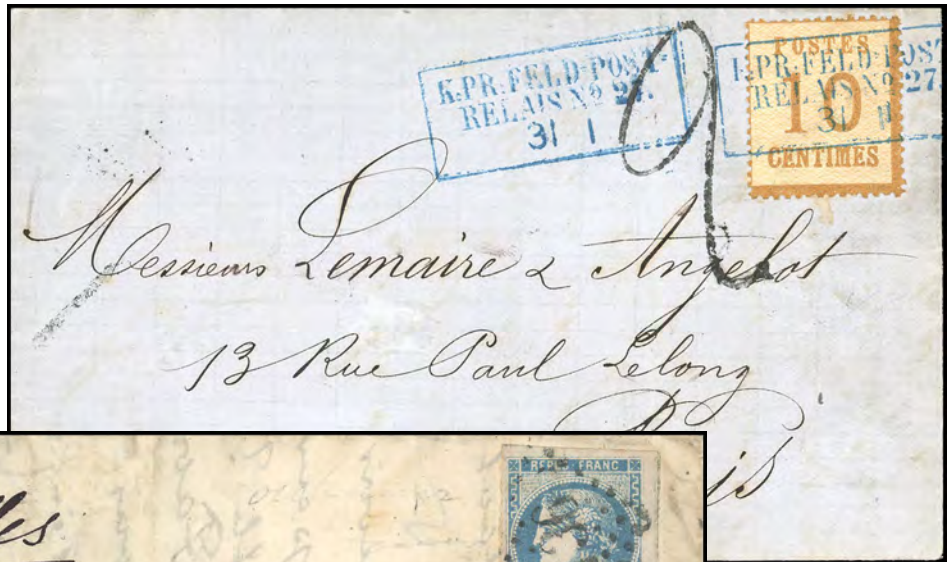 K.PR.FELD-POST-
RELAIS No 27.
31 1
K.PR.FELD-POST
RELAIS No 27.
31 1
POSTES
10
CENTIMES
2
Messieurs Lemaire & Angelot
13 Rue Paul Lelong
Paris
REPUB. FRANC
les